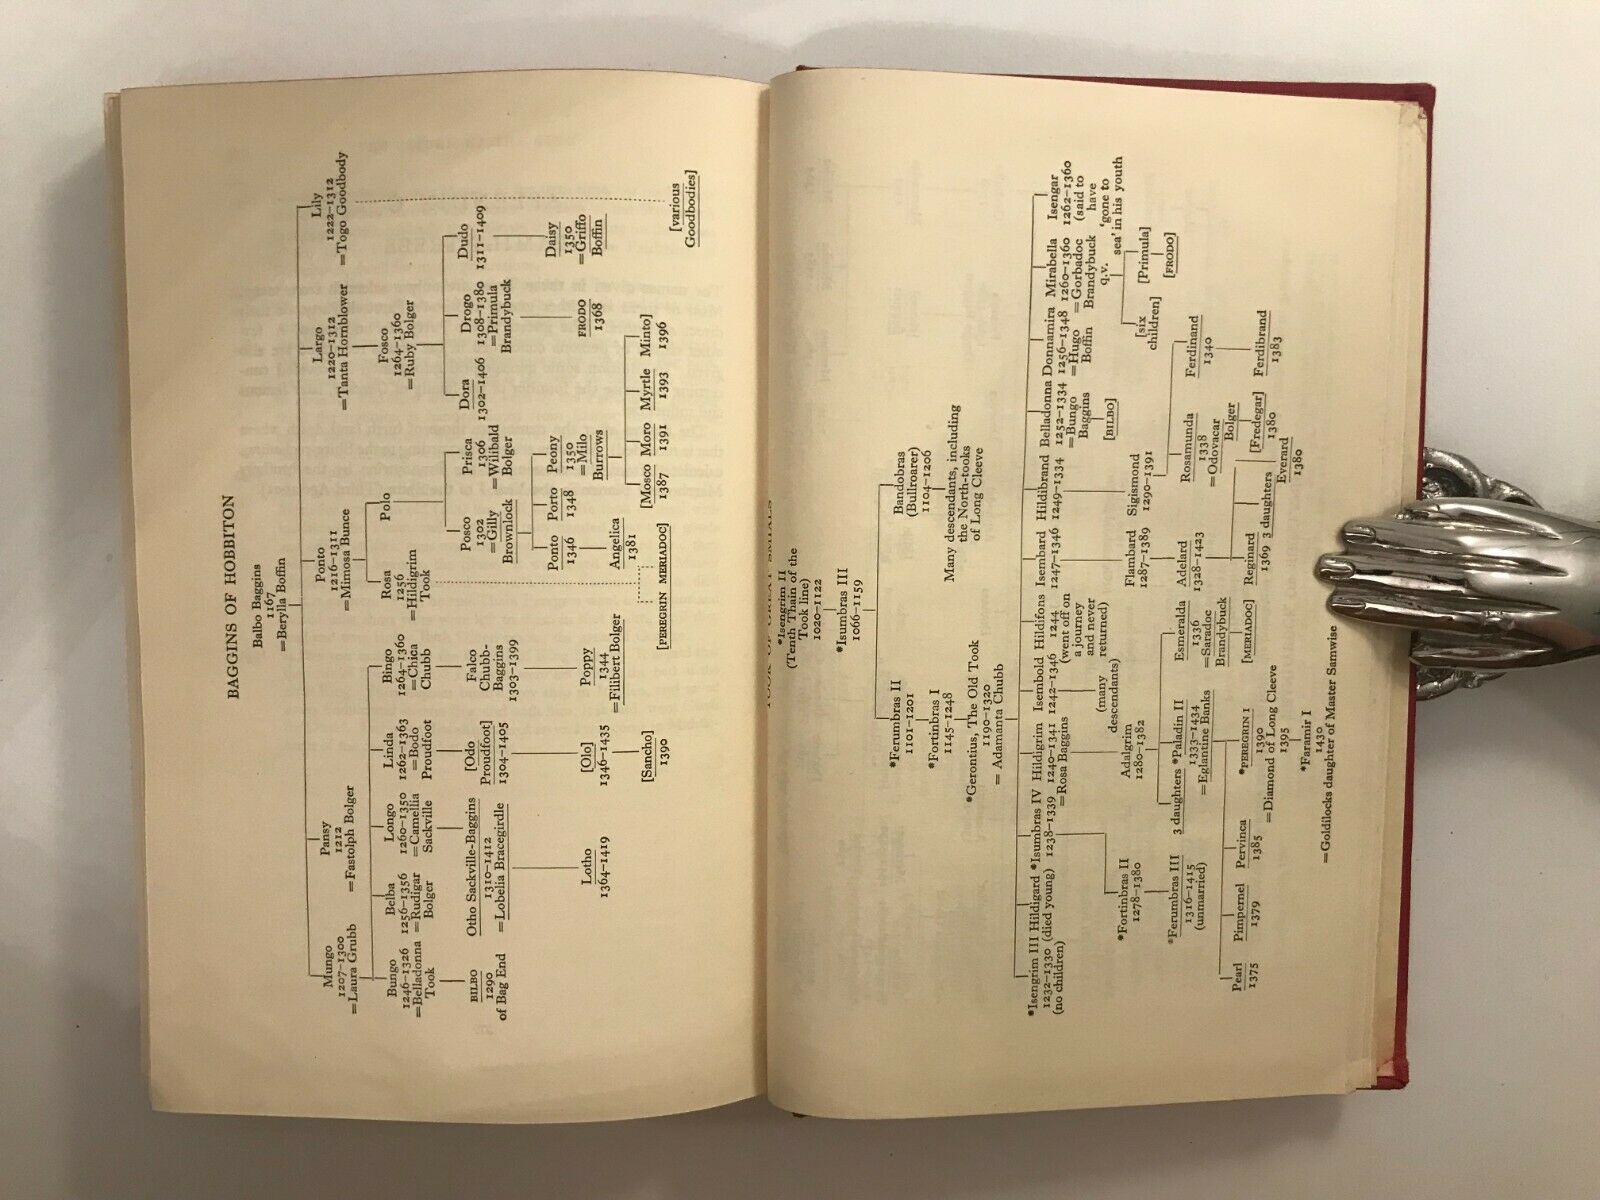 BAGGINS OF HOBBITON
Balbo Baggins
1167
=Berylla Boffin
Mungo
1207–1300
=Laura Grubb
Pansy
1212
=Fastolph Bolger
Ponto
1216–1311
=Mimosa Bunce
Largo
1220–1312
=Tanta Hornblower
Lily
1222–1312
=Togo Goodbody
Bungo
1246–1326
=Belladonna
Took
Belba
1256–1356
=Rudigar
Bolger
Longo
1260–1350
=Camellia
Sackville
Linda
1262–1363
=Bodo
Proudfoot
Bingo
1264–1360
=Chica
Chubb
Rosa
1256
=Hildigrim
Took
Polo
Fosco
1264–1360
=Ruby Bolger
BILBO
1290
of Bag End
Otho Sackville-Baggins
1310–1412
=Lobelia Bracegirdle
[Odo
Proudfoot]
1304–1405
Falco
Chubb-
Baggins
1303–1399
Posco
1302
=Gilly
Brownlock
Prisca
1306
=Wilibald
Bolger
Dora
1302–1406
Drogo
1308–1380
=Primula
Brandybuck
Dudo
1311–1409
Lotho
1364–1419
[Olo]
1346–1435
Poppy
1344
=Filibert Bolger
Ponto
1346
Porto
1348
Peony
1350
=Milo
Burrows
FRODO
1368
Daisy
1350
=Griffo
Boffin
[Sancho]
1390
Angelica
1381
[Mosco
1387
Moro
1391
Myrtle
1393
Minto]
1396
[PEREGRIN MERIADOC]
[various
Goodbodies]
TOOK OF GREAT SMIALS
*Isengrim II
(Tenth Thain of the
Took line)
1020–1122
*Isumbras III
1066–1159
*Ferumbras II
1101–1201
Bandobras
(Bullroarer)
1104–1206
*Fortinbras I
1145–1248
Many descendants, including
the North-tooks
of Long Cleeve
*Gerontius, The Old Took
1190–1320
= Adamanta Chubb
*Isengrim III
1232–1330
(no children)
Hildigard
(died young)
*Isumbras IV
1238–1339
Hildigrim
1240–1341
=Rosa Baggins
Isembold
1242–1346
(many
descendants)
Hildifons
1244
(went off on
a journey
and never
returned)
Isembard
1247–1346
Hildibrand
1249–1334
Belladonna
1252–1334
=Bungo
Baggins
[BILBO]
Donnamira
1256–1348
=Hugo
Boffin
Mirabella
1260–1360
=Gorbadoc
Brandybuck
q.v.
Isengar
1262–1360
(said to
have
'gone to
sea' in his youth
[six
children]
[Primula]
[FRODO]
*Fortinbras II
1278–1380
Adalgrim
1280–1382
Flambard
1287–1389
Sigismond
1290–1391
*Ferumbras III
1316–1415
(unmarried)
3 daughters
*Paladin II
1333–1434
=Eglantine Banks
Esmeralda
1336
=Saradoc
Brandybuck
[MERIADOC]
Adelard
1328–1423
Rosamunda
1338
=Odovacar
Bolger
[Fredegar]
1380
Ferdinand
1340
Ferdibrand
1383
Pearl
1375
Pimpernel
1379
Pervinca
1385
*PEREGRIN I
1390
=Diamond of Long Cleeve
1395
Reginard
1369
3 daughters
Everard
1380
*Faramir I
1430
=Goldilocks daughter of Master Samwise